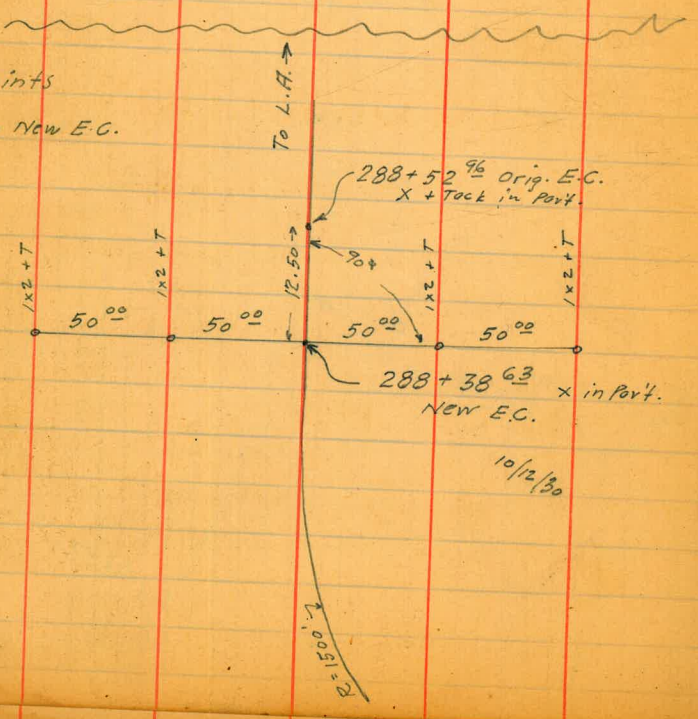 ints
New E.C.
To L.A. →
288 + 52 96 Orig. E.C.
X + Tack in Pav't.
12.50 →
90°
1x2 + T
1x2 + T
1x2 + T
1x2 + T
50 00
50 00
50 00
50 00
288 + 38 63 x in Pav't.
New E.C.
10/12/30
R = 1500'